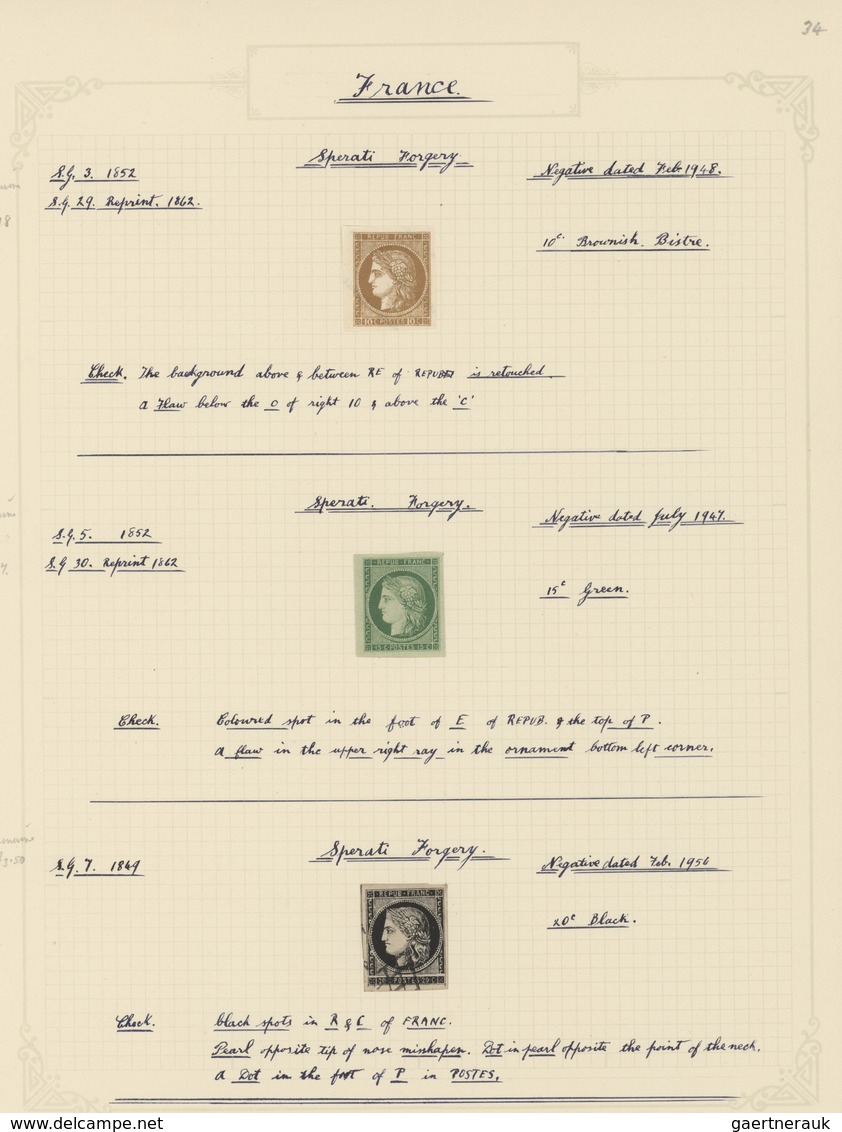 34
France.
Sperati Forgery
S.G. 3. 1852
Negative dated Feb. 1948.
S.G. 29. Reprint. 1862.
10c. Brownish. Bistre.
REPUB FRANC
10 C POSTES 10 C
Check. The background above & between RE of REPUB is retouched
a Flaw below the 0 of right 10 & above the 'C'
Sperati. Forgery.
S.G. 5. 1852
Negative dated July 1947.
S.G 30. Reprint 1862
15c Green.
REPUB FRANC
15 C POSTES 15 C
Check. Coloured spot in the foot of E of REPUB. & the top of P.
a flaw in the upper right ray in the ornament bottom left corner.
Sperati Forgery.
S.G. 7. 1849
Negative dated Feb. 1956
20c Black.
REPUB FRANC
20 C POSTES 20 C
Check. black spots in R & C of FRANC.
Pearl opposite tip of nose misshapen. Dot in pearl opposite the point of the neck.
a Dot in the foot of P in POSTES.
www.delcampe.net
gaertnerauk